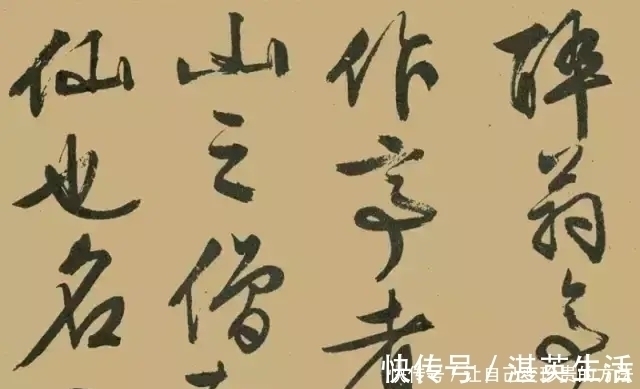 醉翁亭
作亭者
山之僧
仙也名
快传号 / 湛英生活